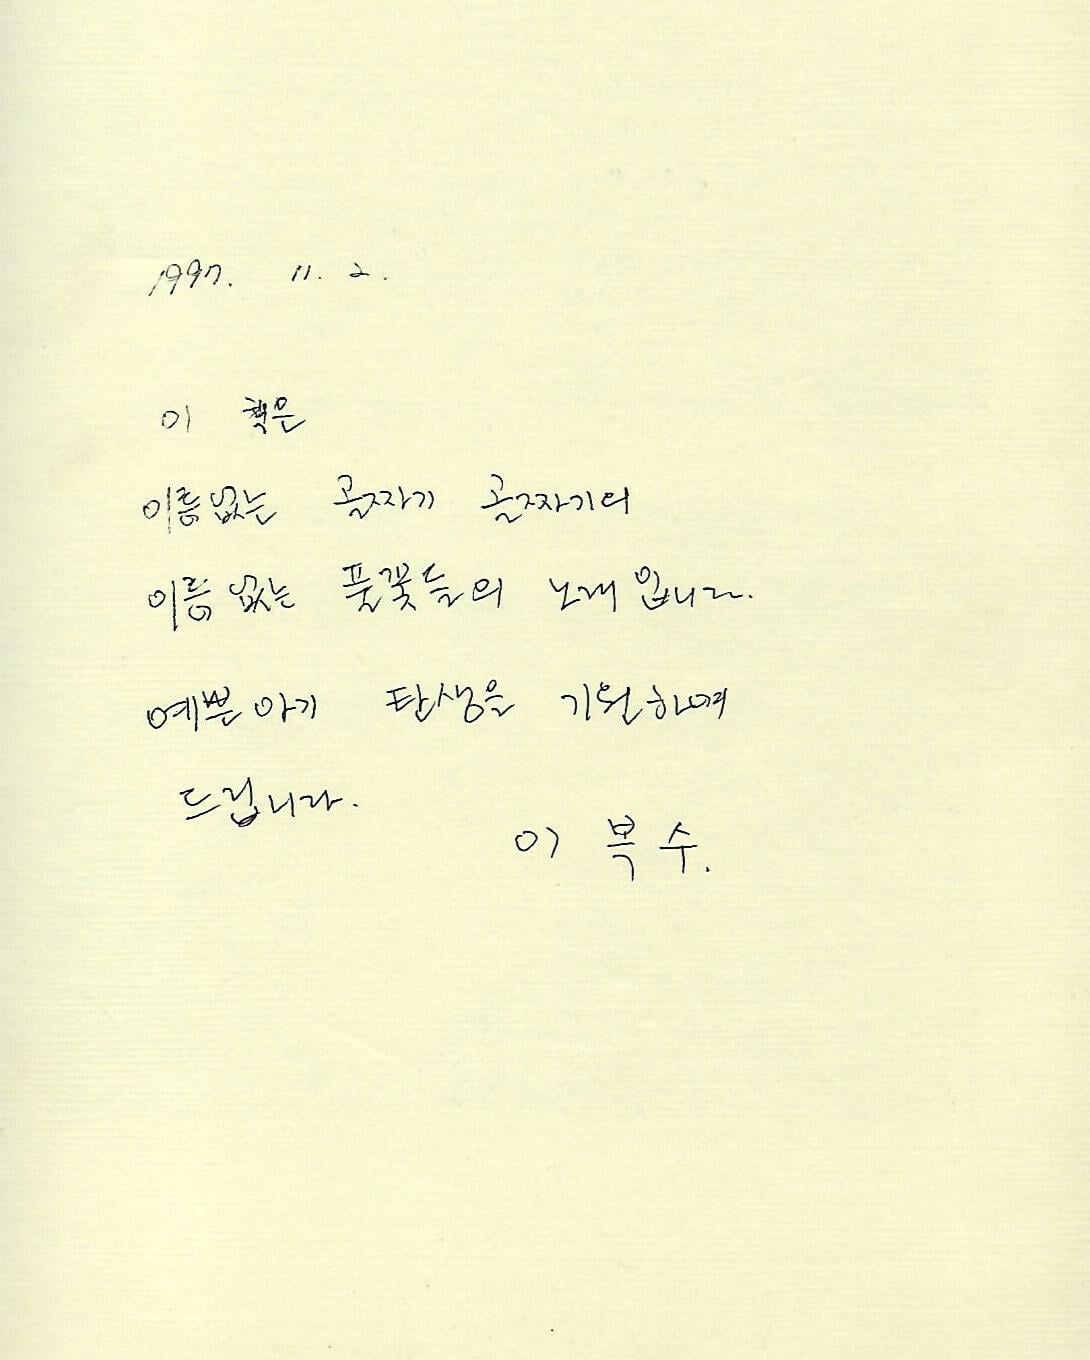 1997. 11. 2.
이 책은
이름없는 골짜기 골짜기의
이름없는 풀꽃들의 노래입니다.
예쁜아기 탄생을 기원하여
드립니다.
이 복 수.